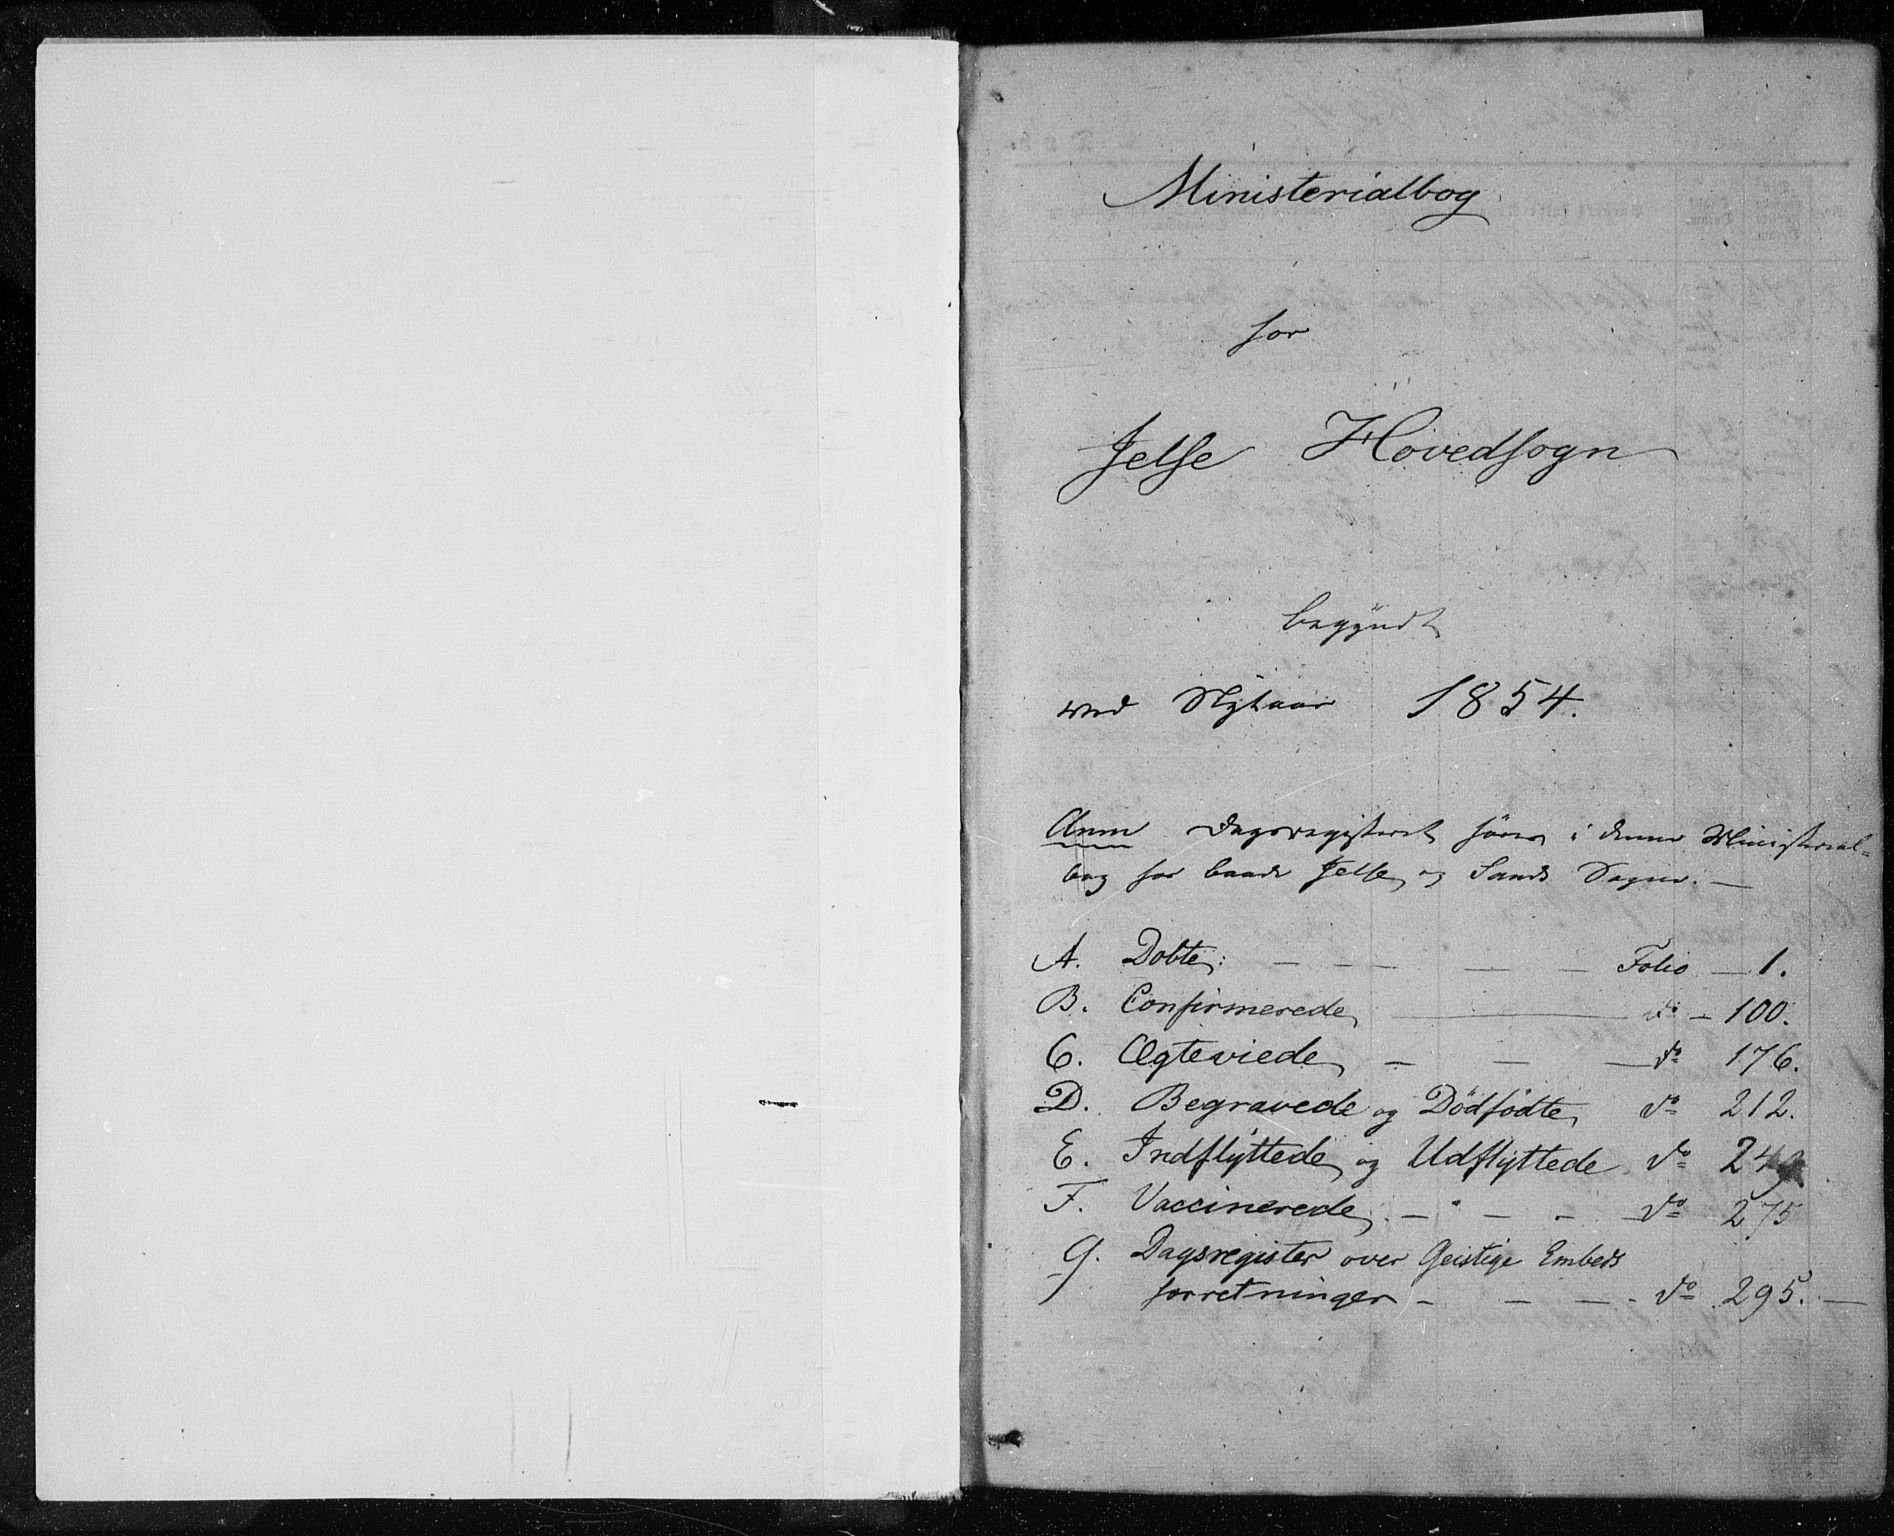 Ministerialbog
for
Jelse Hovedsogn
begyndt
ved Nytaar 1854.
Anm Dagsregisteret føres i denne Ministerial=
bog for baade Jelse og Sands Sogne. —
A. Döbte: — — — — — Folio — 1.
B. Confirmerede, — do — 100.
C. Ægteviede — — — do 176.
D. Begravede og Dödfödte, do 212.
E. Indflÿttede og Udflÿttede do 249
F. Vaccinerede, — — — — do 275
G. Dagsregister over Geistige Embeds
forretninger — — — - do 295. —